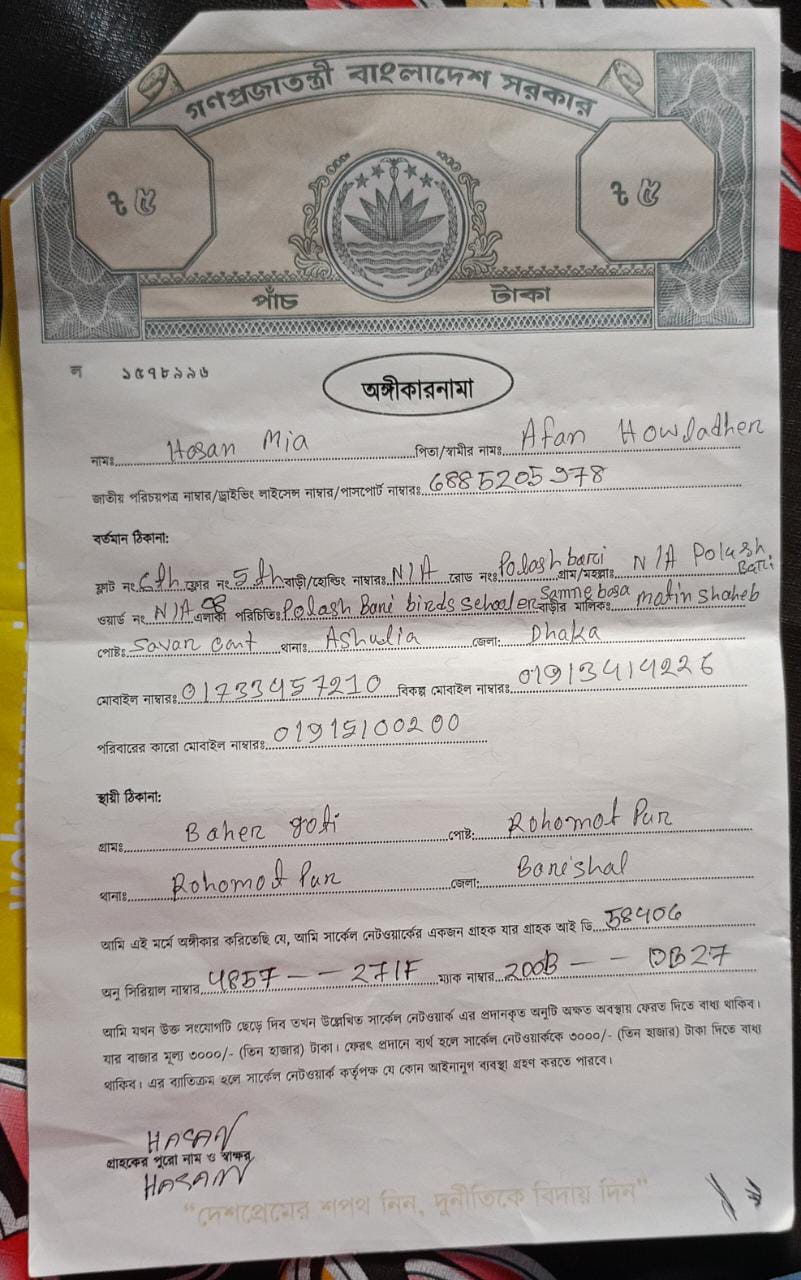 গণপ্রজাতন্ত্রী বাংলাদেশ সরকার
৳ ৫ ৳ ৫
পাঁচ টাকা
ন ১৫৭৮৯৯৬
অঙ্গীকারনামা
নামঃ Hosan Mia পিতা/স্বামীর নামঃ Afan Howladher
জাতীয় পরিচয়পত্র নাম্বার/ড্রাইভিং লাইসেন্স নাম্বার/পাসপোর্ট নাম্বারঃ 6885205978
বর্তমান ঠিকানা:
ফ্লাট নং 6th ফ্লোর নং 5th বাড়ী/হোল্ডিং নাম্বারঃ N/A রোড নংঃ Polash bari গ্রাম/মহল্লাঃ N/A Polash Bari
ওয়ার্ড নং N/A এলাকা পরিচিতিঃ Polash Bani birds Samne basa বাড়ীর মালিকঃ matin shaheb
পোষ্টঃ Savar cant থানাঃ Ashulia জেলা: Dhaka
মোবাইল নাম্বারঃ 01733457210 বিকল্প মোবাইল নাম্বারঃ 01913414226
পরিবারের কারো মোবাইল নাম্বারঃ 01915100200
স্থায়ী ঠিকানা:
গ্রামঃ Baher goti পোষ্ট: Rohomot Pur
থানাঃ Rohomot Pur জেলা: Bareshal
আমি এই মর্মে অঙ্গীকার করিতেছি যে, আমি সার্কেল নেটওয়ার্কের একজন গ্রাহক যার গ্রাহক আই ডি 58406
অনু সিরিয়াল নাম্বার 4857 -- 271F ম্যাক নাম্বার 200B -- DB27
আমি যখন উক্ত সংযোগটি ছেড়ে দিব তখন উল্লেখিত সার্কেল নেটওয়ার্ক এর প্রদানকৃত অনুটি অক্ষত অবস্থায় ফেরত দিতে বাধ্য থাকিব।
যার বাজার মূল্য ৩০০০/- (তিন হাজার) টাকা। ফেরৎ প্রদানে ব্যর্থ হলে সার্কেল নেটওয়ার্ককে ৩০০০/- (তিন হাজার) টাকা দিতে বাধ্য
থাকিব। এর ব্যতিক্রম হলে সার্কেল নেটওয়ার্ক কর্তৃপক্ষ যে কোন আইনানুগ ব্যবস্থা গ্রহণ করতে পারবে।
HASAN
গ্রাহকের পুরো নাম ও স্বাক্ষর
HASAN
“দেশপ্রেমের শপথ নিন, দুর্নীতিকে বিদায় দিন”